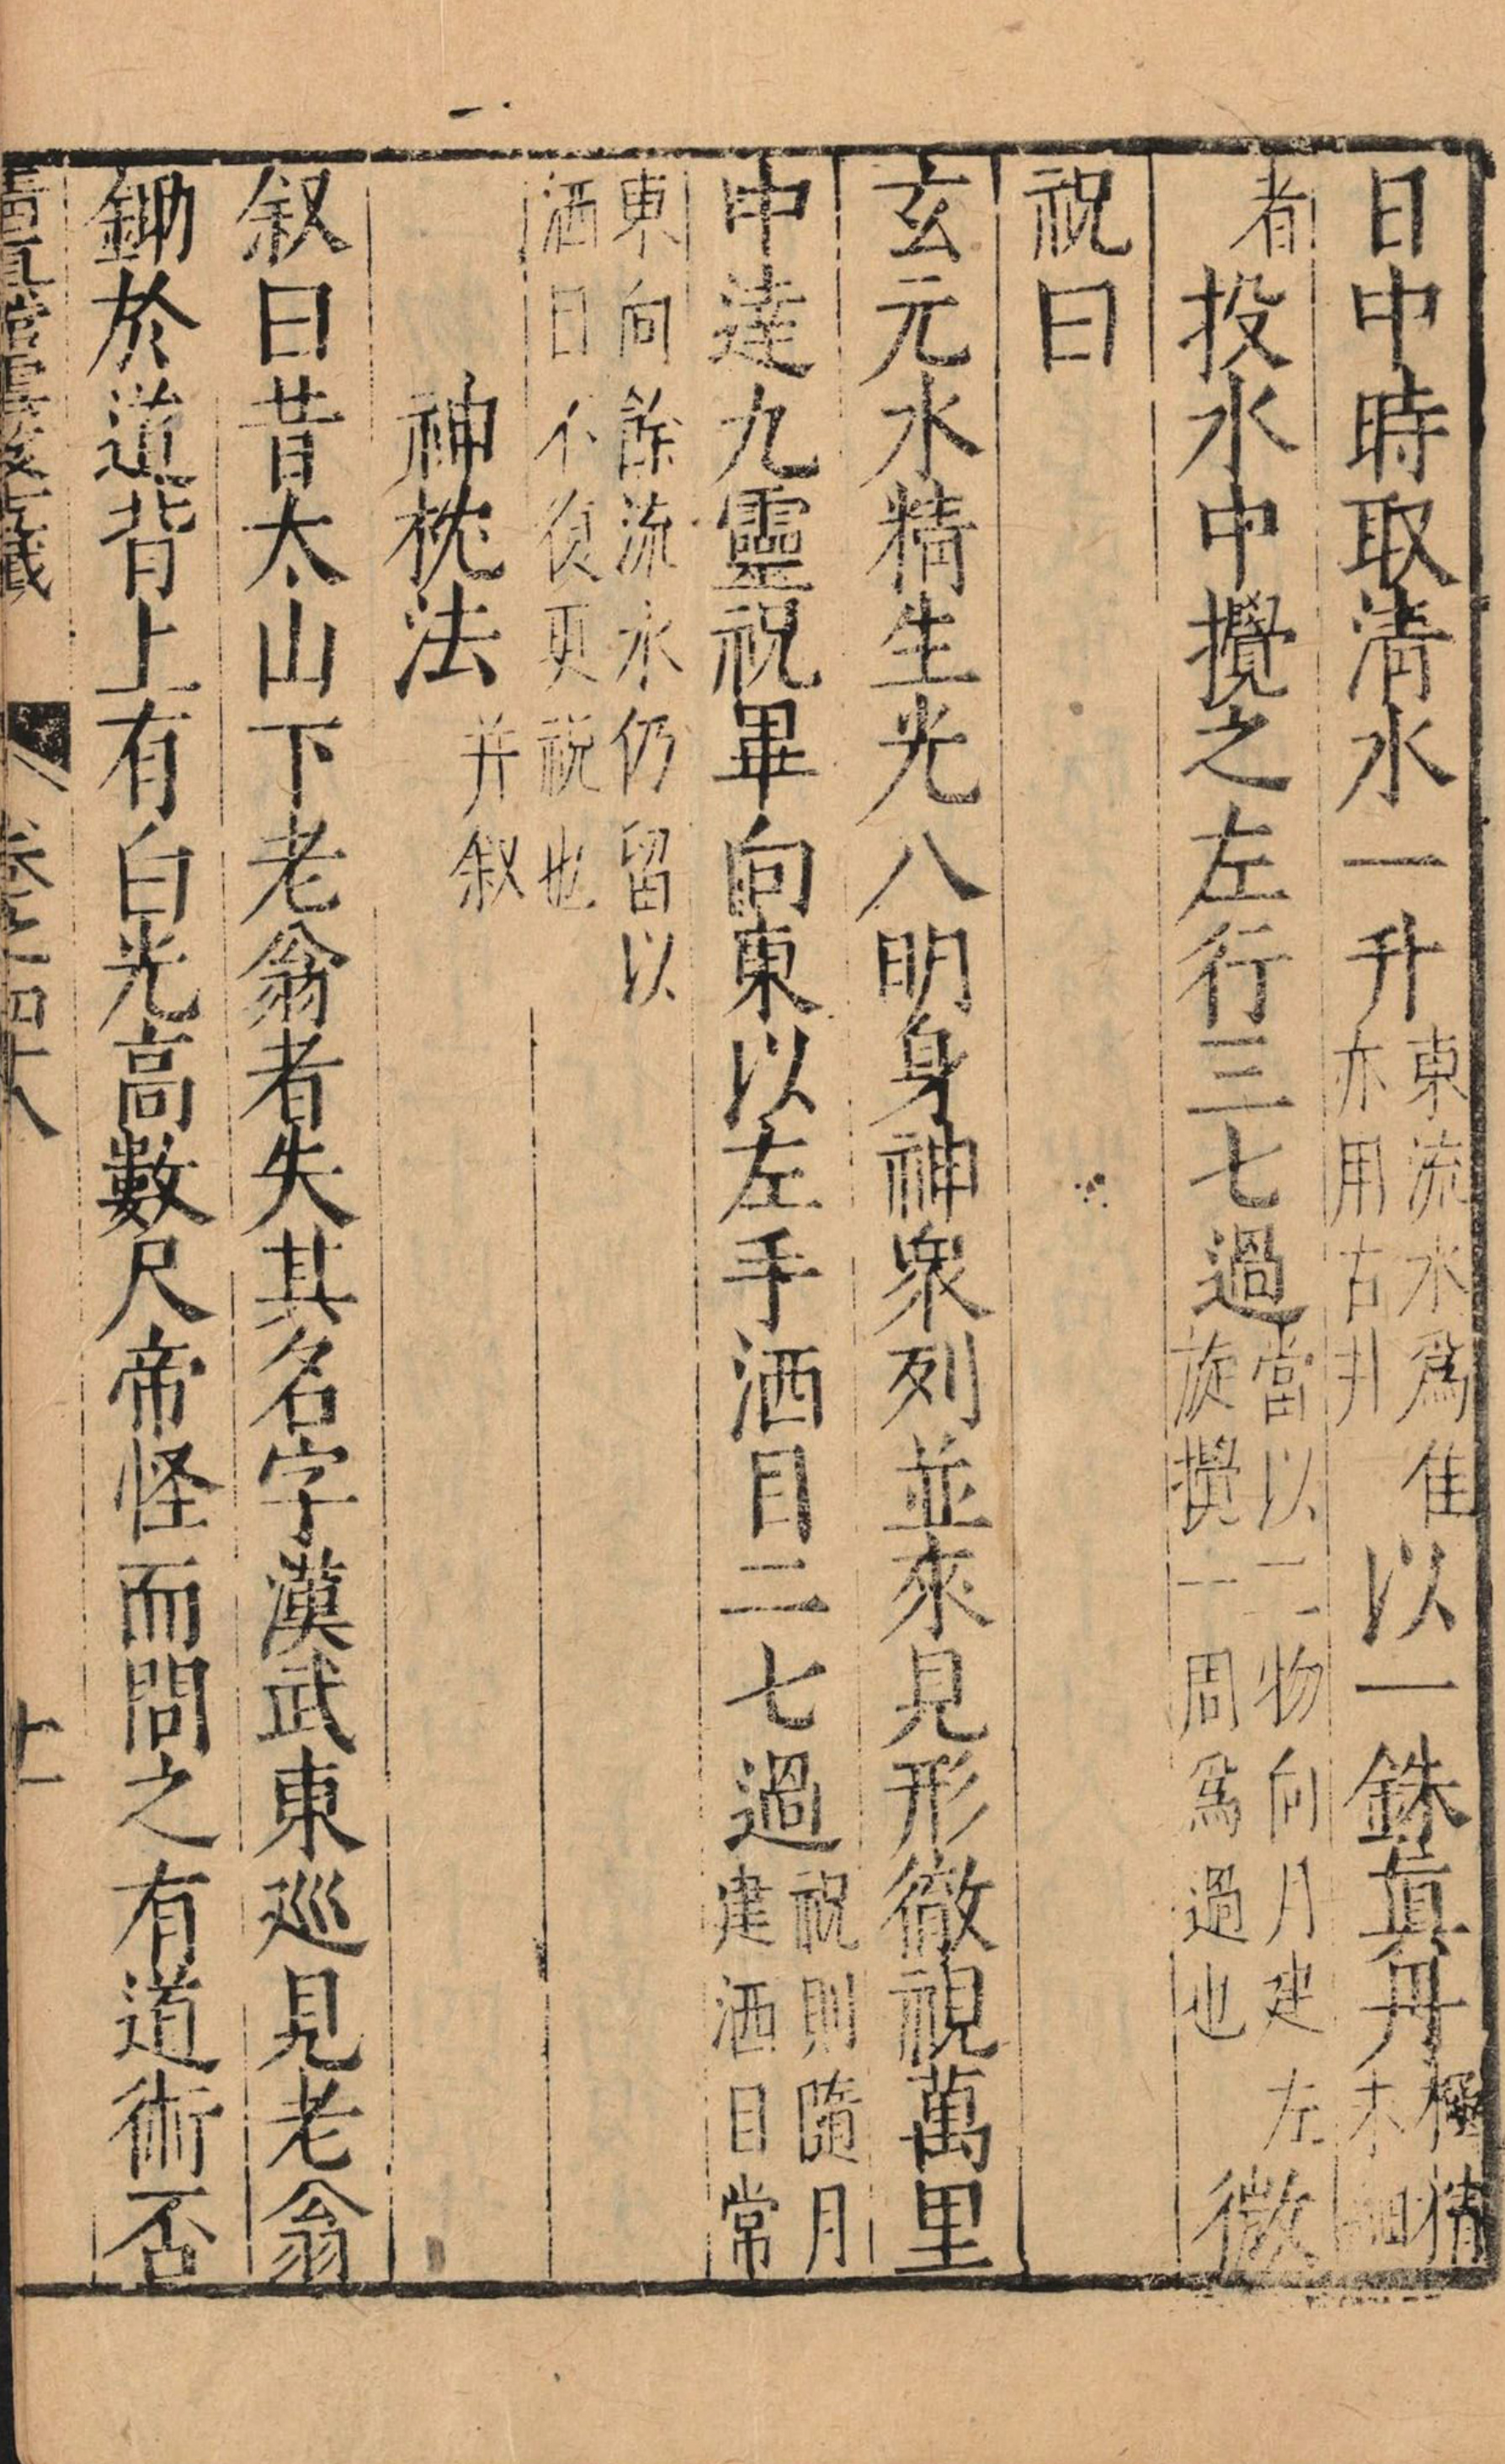 日中時取清水一升東流水爲佳亦用古井以一銖真丹極精末細
者投水中攪之左行三七過當以二物向月建左旋攪一周爲過也微
祝曰
玄元水精生光八明身神衆列並來見形徹視萬里
中達九靈祝畢向東以左手洒目二七過祝則隨月建洒目常
東向餘流水仍留以洒日不復更祝也
神枕法并叙
叙曰昔太山下老翁者失其名字漢武東巡見老翁
鋤於道背上有白光高數尺帝怪而問之有道術否
卷之四十八 十一